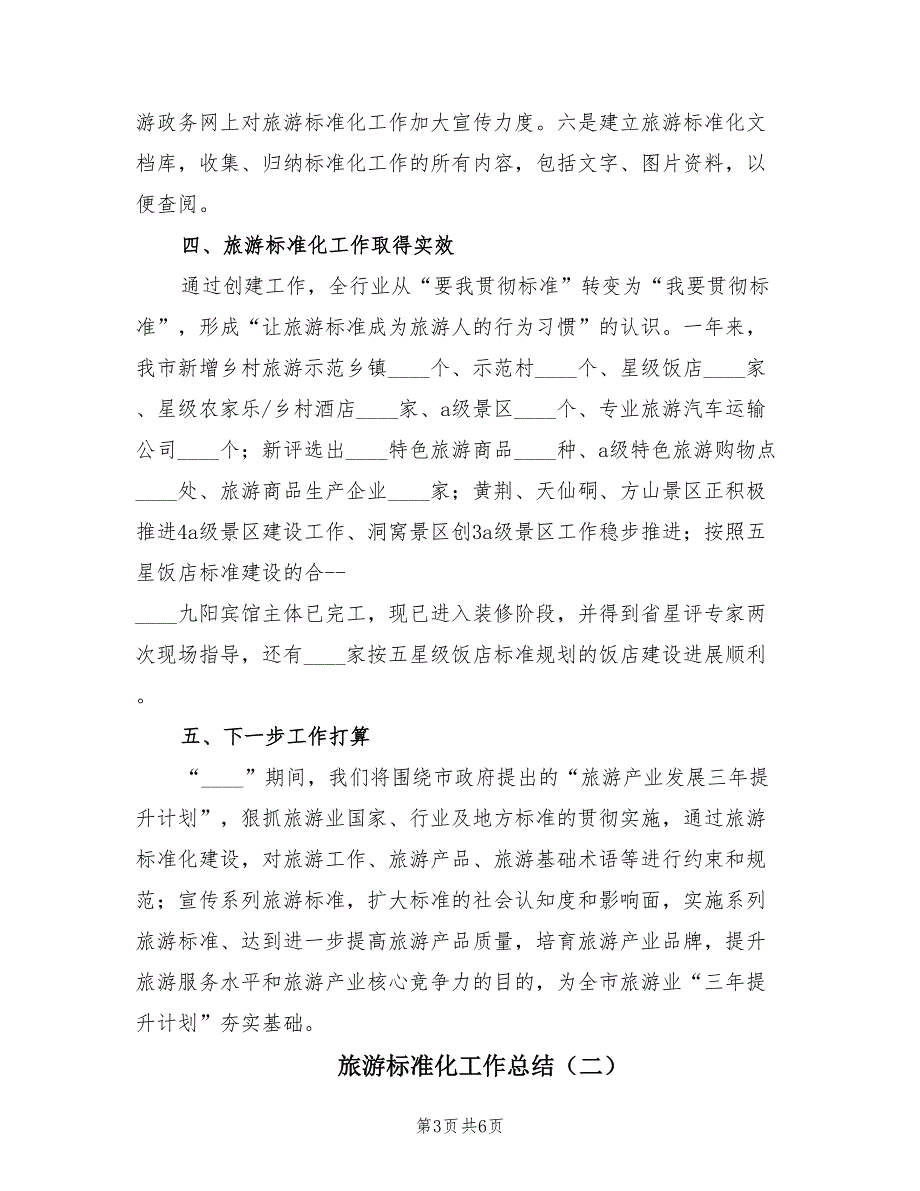 游政务网上对旅游标准化工作加大宣传力度。六是建立旅游标准化文
档库，收集、归纳标准化工作的所有内容，包括文字、图片资料，以
便查阅。
四、旅游标准化工作取得实效
通过创建工作，全行业从“要我贯彻标准”转变为“我要贯彻标
准”，形成“让旅游标准成为旅游人的行为习惯”的认识。一年来，
我市新增乡村旅游示范乡镇____个、示范村____个、星级饭店____家
、星级农家乐/乡村酒店____家、a级景区____个、专业旅游汽车运输
公司____个；新评选出____特色旅游商品____种、a级特色旅游购物点
____处、旅游商品生产企业____家；黄荆、天仙硐、方山景区正积极
推进4a级景区建设工作、洞窝景区创3a级景区工作稳步推进；按照五
星饭店标准建设的合--
____九阳宾馆主体已完工，现已进入装修阶段，并得到省星评专家两
次现场指导，还有____家按五星级饭店标准规划的饭店建设进展顺利
。
五、下一步工作打算
“____”期间，我们将围绕市政府提出的“旅游产业发展三年提
升计划”，狠抓旅游业国家、行业及地方标准的贯彻实施，通过旅游
标准化建设，对旅游工作、旅游产品、旅游基础术语等进行约束和规
范；宣传系列旅游标准，扩大标准的社会认知度和影响面，实施系列
旅游标准、达到进一步提高旅游产品质量，培育旅游产业品牌，提升
旅游服务水平和旅游产业核心竞争力的目的，为全市旅游业“三年提
升计划”夯实基础。
旅游标准化工作总结（二）
第3页共6页